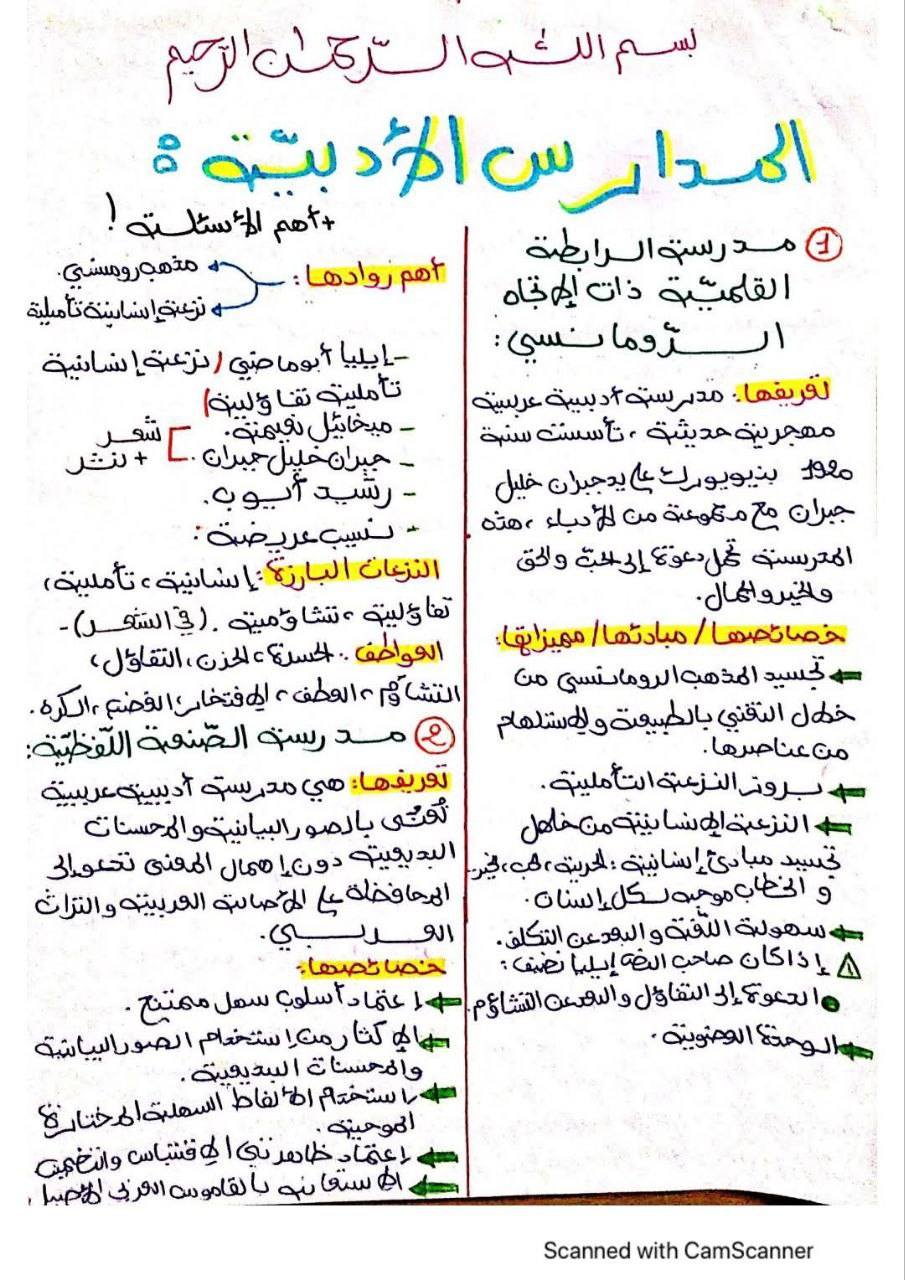 بسم الله الرّحمان الرّحيم
المدارس الأدبيّة :
+ أهم الأسئلة !
① مدرسة الرابطة
القلميّة ذات الإتجاه
الرّومانسي :
تعريفها: مدرسة أدبية عربية
مهجرية حديثة ، تأسست سنة
1920 بنيويورك على يد جبران خليل
جبران مع مجموعة من الأدباء ، هذه
المدرسة تحمل دعوة إلى الحبّ والحق
والخير والجمال.
خصائصها / مبادئها / مميزاتها:
تجسيد المذهب الرومانسي من
خلال التغني بالطبيعة والإستلهام
من عناصرها.
بروز النزعة التأملية.
النزعة الإنسانية من خلال
تجسيد مبادئ إنسانية : الحرية ، الحب ، الخير
و الخطاب موجه لكل إنسان.
سهولة اللّغة و البعد عن التكلف.
إذا كان صاحب النص إيليا نضيف :
الدعوة إلى التفاؤل والبعد عن التشاؤم.
الوحدة العضوية.
أهم روادها :
مذهب رومنسي.
نزعة إنسانية تأملية
- إيليا أبو ماضي / نزعة إنسانية
تأملية تفاؤلية /
- ميخائيل نعيمة.
- جبران خليل جبران.
شعر
+ نثر
- رشيد أيوب.
- نسيب عريضة :
النزعات البارزة : إنسانية ، تأملية ،
تفاؤلية ، تشاؤمية . (في الشعر) -
العواطف : الحسرة ، الحزن ، التفاؤل ،
التشاؤم ، العطف ، الإفتخار ، الغضب ، الكره .
② مدرسة الصّنعة اللّفظيّة :
تعريفها : هي مدرسة أدبية عربية
تُعنى بالصور البيانية والمحسنات
البديعية دون إهمال المعنى تدعو إلى
المحافظة على الأصالة العربية والتراث
العربي.
خصائصها :
إعتماد أسلوب سهل ممتنع.
الإكثار من إستخدام الصور البيانية
والمحسنات البديعية.
إستخدام الألفاظ السهلة المختارة
الموحية.
إعتماد ظاهرتي الإقتباس والتضمين
الإستعانة بالقاموس العربي الأصيل
Scanned with CamScanner